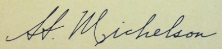 H. Michelson